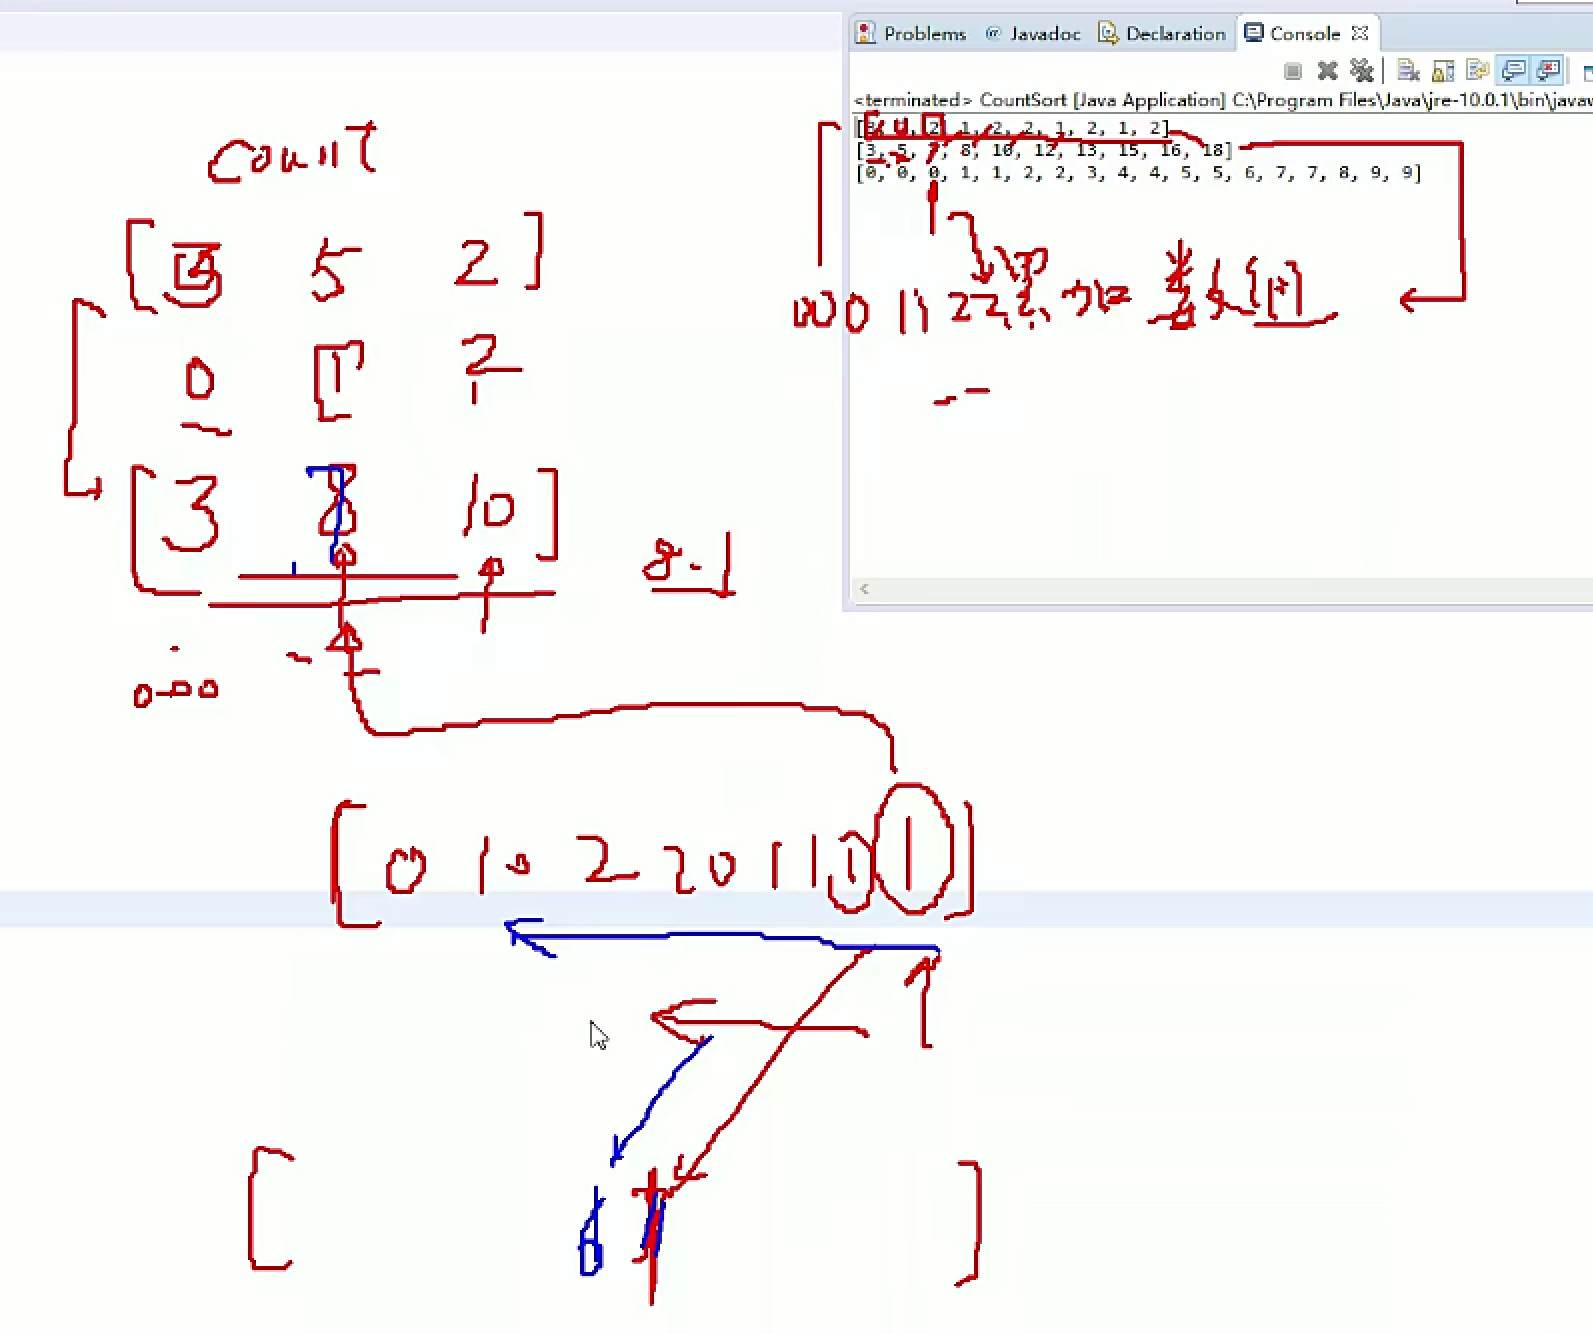 Problems @ Javadoc Declaration Console
<terminated> CountSort [Java Application] C:\Program Files\Java\jre-10.0.1\bin\javaw
2, 1, 2, 2, 1, 2, 1, 2]
[3, 5, 7, 8, 10, 12, 13, 15, 16, 18]
[0, 0, 0, 1, 1, 2, 2, 3, 4, 4, 5, 5, 6, 7, 7, 8, 9, 9]
count
5 2 ]
000 11 22 累加数组
0 1 2
[ 3 8 10 ]
8-1
000
[ 0 1 0 2 2 0 1 1 1 1 ]
[ 6 7 ]